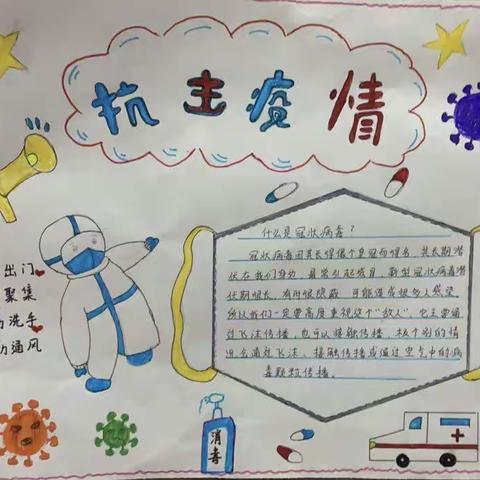 抗击疫情
什么是冠状病毒?
冠状病毒因其长得像个皇冠而得名,其长期潜
伏在我们身边,最常引起感冒,新型冠状病毒潜
伏期很长,有时很隐蔽,可能造成很多人感染
所以我们一定要高度重视这个“敌人”。它主要通
过飞沫传播,也可以接触传播,极个别的情
况会通过飞沫、接触传播或通过空气中的病
毒颗粒传播。
出门
聚集
洗手
通风
消毒